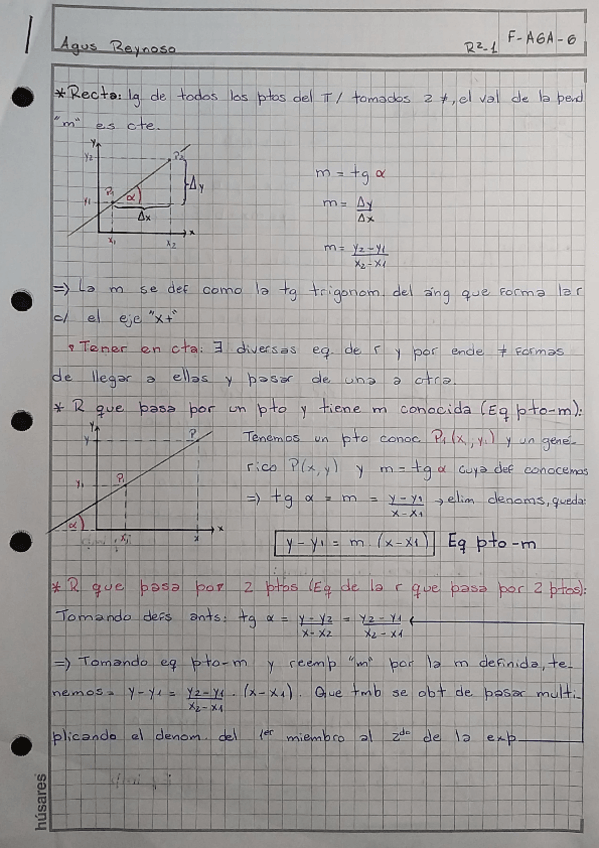 Agus Reynoso R²-1 F-AGA-6
*Recta: lg de todos los ptos del π/ tomados 2 ≠, el val de la pend
"m" es cte.
y
y2 P2
y1 P1 α Δy
Δx
x1 x2 x
m = tg α
m = Δy/Δx
m = y2-y1/x2-x1
=> La m se def como la tg trigonom. del áng que forma la r
c/ el eje "x+"
Tener en cta: ∃ diversas eq. de r y por ende ≠ formas
de llegar a ellas y pasar de una a otra.
* R que pasa por un pto y tiene m conocida (Eq pto-m):
y
y P
y1 P1
α
x1 x x
Tenemos un pto conoc P1(x1,y1) y un gené-
rico P(x,y) y m = tg α cuya def conocemos
=> tg α = m = y-y1/x-x1 → elim denoms, queda:
y-y1 = m.(x-x1) Eq pto-m
*R que pasa por 2 ptos (Eq de la r que pasa por 2 ptos):
Tomando defs ants: tg α = y-y2/x-x2 = y2-y1/x2-x1
=> Tomando eq pto-m y reemp "m" por la m definida, te-
nemos = y-y1 = y2-y1/x2-x1 . (x-x1). Que tmb se obt de pasar multi-
plicando el denom. del 1er miembro al 2do de la exp
húsares